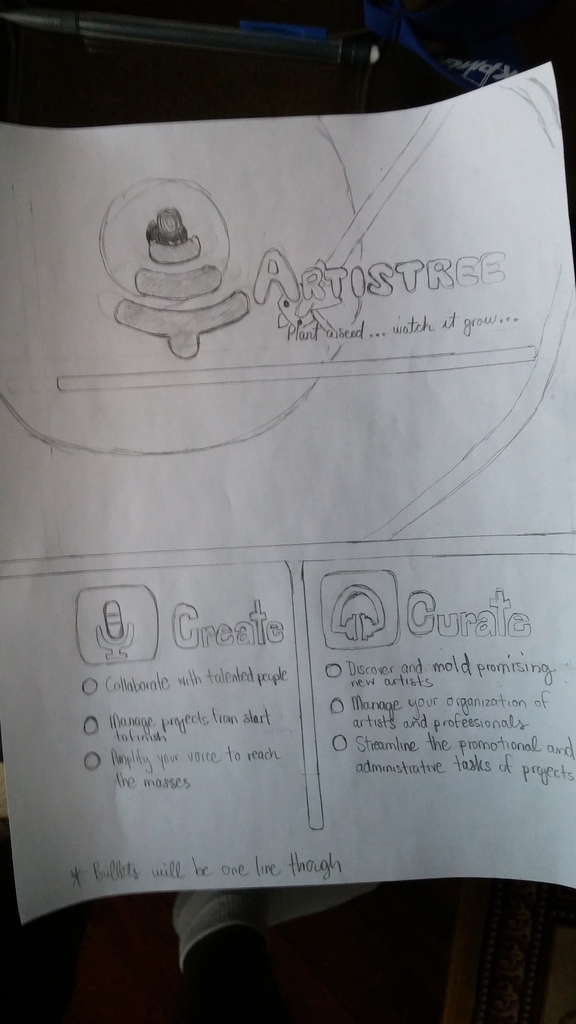 ARTISTREE
Plant a seed... watch it grow...
Create
Collaborate with talented people
Manage projects from start
to finish
Amplify your voice to reach
the masses
Curate
Discover and mold promising
new artists
Manage your organization of
artists and professionals
Streamline the promotional and
administrative tasks of projects
* Bullets will be one line though